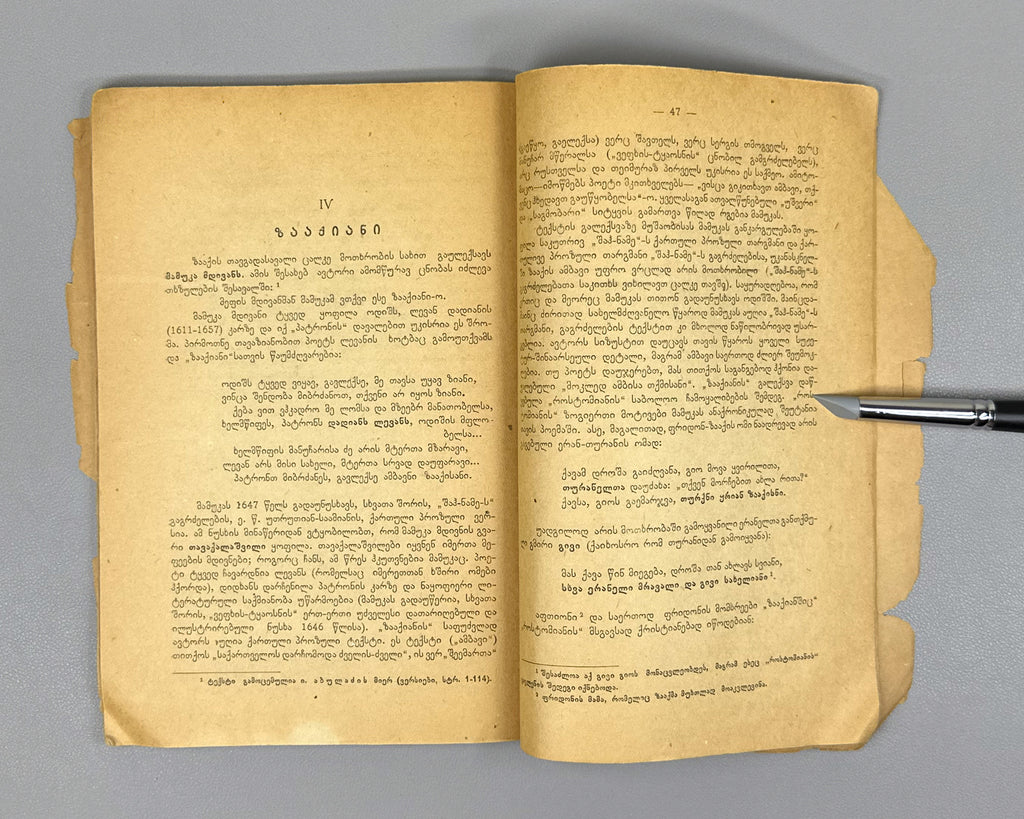 IV
ზააქიანი
ზააქის თავგადასავალი ცალკე მოთხრობის სახით გაულექსავს
მამუკა მდივანს. ამის შესახებ ავტორი ამომწურავ ცნობას იძლევა
თხზულების შესავალში: ¹
მეფის მდივანმან მამუკამ ვთქვი ესე ზააქიანი-ო.
მამუკა მდივანი ტყვედ ყოფილა ოდიშს, ლევან დადიანის
(1611-1657) კარზე და იქ „პატრონის“ დავალებით უკისრია ეს შრო-
მა. პირმოთნე თავაზიანობით პოეტს ლევანის ხოტბაც გამოუთქვამს
და „ზააქიანი“სათვის წაუმძღვარებია:
ოდიშს ტყვედ ვიყავ, გავლექსე, მე თავსა უყავ ზიანი,
ვინცა შენდობა მიბრძანოთ, თქვენი არ იყოს ზიანი.
ქება ვით ვჰკადრო მე ლომსა და მზეებრ მანათობელსა,
ხელმწიფეს, პატრონს დადიანს ლევანს, ოდიშის მფლო-
ბელსა...
ხელმწიფის მანუჩარისა ძე არის მტერთა მზარავი,
ლევან არს მისი სახელი, მტერთა სრვად დაუფარავი...
პატრონთ მიბრძანეს, გავლექსე ამბავნი ზააქისანი.
მამუკას 1647 წელს გადაუნუსხავს, სხვათა შორის, „შაჰ-ნამე-ს“
გაგრძელების, ე. წ. უთრუთიან-საამიანის, ქართული პროზული ვერ-
სია. ამ ნუსხის მინაწერიდან ვტყობილობთ, რომ მამუკა მდივნის გვა-
რი თავაქალაშვილი ყოფილა. თავაქალაშვილები იყვნენ იმერთა მე-
ფეების მდივნები; როგორც ჩანს, ამ წრეს ჰკუთვნებია მამუკაც. პოე-
ტი ტყვედ ჩავარდნია ლევანს (რომელსაც იმერეთთან ხშირი ომები
ჰქორდა), დიდხანს დარჩენილა პატრონის კარზე და ნაყოფიერი ლი-
ტერატურული საქმიანობა უწარმოებია (მამუკას გადაუწერია, სხვათა
შორის, „ვეფხის-ტყაოსნის“ ერთ-ერთი უძველესი დათარიღებული და
ილუსტრირებული ნუსხა 1646 წლისა). „ზააქიანის“ საფუძვლად
ავტორს უღია ქართული პროზული ტექსტი. ეს ტექსტი („ამბავი“)
თითქოს „საქართველოს დარჩომოდა ძველის-ძველი“, ის ვერ „შეემართა“
¹ ტექსტი გამოცემულია ი. აბულაძის მიერ (ვერსიები, სტრ. 1-114).
— 47 —
გაელექსა) ვერც შავთელს, ვერც სერგის თმოგველს, ვერც
მწერალსა („ვეფხის-ტყაოსნის“ ცნობილ გამგრძელებელს),
რუსთველსა და თეიმურაზ პირველს უკისრია ეს საქმეო. ამიტო-
—იმოწმებს პოეტი მკითხველებს— „ვისცა გიკითხავთ ამბავი, თქ-
გაუწყობელსა“-ო. ყველასაგან ათვალწუნებული „უშვერი“
და „საგმობარი“ სიტყვის გამართვა წილად რგებია მამუკას.
ტექსტის გალექსვაზე მუშაობისას მამუკას განკარგულებაში ყო-
საკუთრივ „შაჰ-ნამე“-ს ქართული პროზული თარგმანი და ქარ-
პროზული თარგმანი „შაჰ-ნამე“-ს გაგრძელებისა, უკანასკნელ-
ზააქის ამბავი უფრო ვრცლად არის მოთხრობილი („შაჰ-ნამე“-ს
საკითხს ვიხილავთ ცალკე თავში). საყურადღებოა, რომ
და მეორეც მამუკას თითონ გადაუნუსხავს ოდიშში. მაინცდა-
ძირითად სახელმძღვანელო წყაროდ მამუკას აუღია „შაჰ-ნამე“-ს
გაგრძელების ტექსტით კი მხოლოდ ნაწილობრივად უსარ-
ავტორს სიზუსტით დაუცავს თავის წყაროს ყოველი სუჟე-
დეტალი, მაგრამ ამბავი საერთოდ ძლიერ შეუმოკ-
თუ პოეტს დაუჯერებთ, მას თითქოს საგანგებოდ ჰქონია და-
„მოკლედ ამბისა თქმისანი“. „ზააქიანის“ გალექსვა დაწ-
„როსტომიანის“ საბოლოო ჩამოყალიბების შემდეგ. „როს-
ზოგიერთი მოტივები მამუკას ანაქრონიკულად შეუტანია
პოემაში. ასე, მაგალითად, ფრიდონ-ზააქის ომი ნაადრევად არის
ერან-თურანის ომად:
ქავამ დროშა გაიძღვანა, გიო მოვა ყვირილითა,
თურანელთა დაუძახა: „თქვენ მორჩებით ახლა რითა?“
ქავსა, გიოს გაემარჯვა, თურქნი ყრიან ზააქისნი.
უადგილოდ არის მოთხრობაში გამოყვანილი ერანელთა განთქმე-
გმირი გივი (ქაიხოსრო რომ თურანიდან გამოიყვანა):
მას ქავა წინ მიეგება, დროშა თან ახლავს სვიანი,
სხვა ერანელი მრავალი და გივი სახელიანი ¹.
აფთიონი ² და საერთოდ ფრიდონის მომხრეები „ზააქიანშიც“
მსგავსად ქრისტიანებად იწოდებიან:
¹ შესაძლოა აქ გივი გიოს მონაცვლეობდეს, მაგრამ ესეც „როსტომიანის“
შედეგი იქნებოდა.
² ფრიდონის მამა, რომელიც ზააქმა მუხთლად მოაკვლევინა.